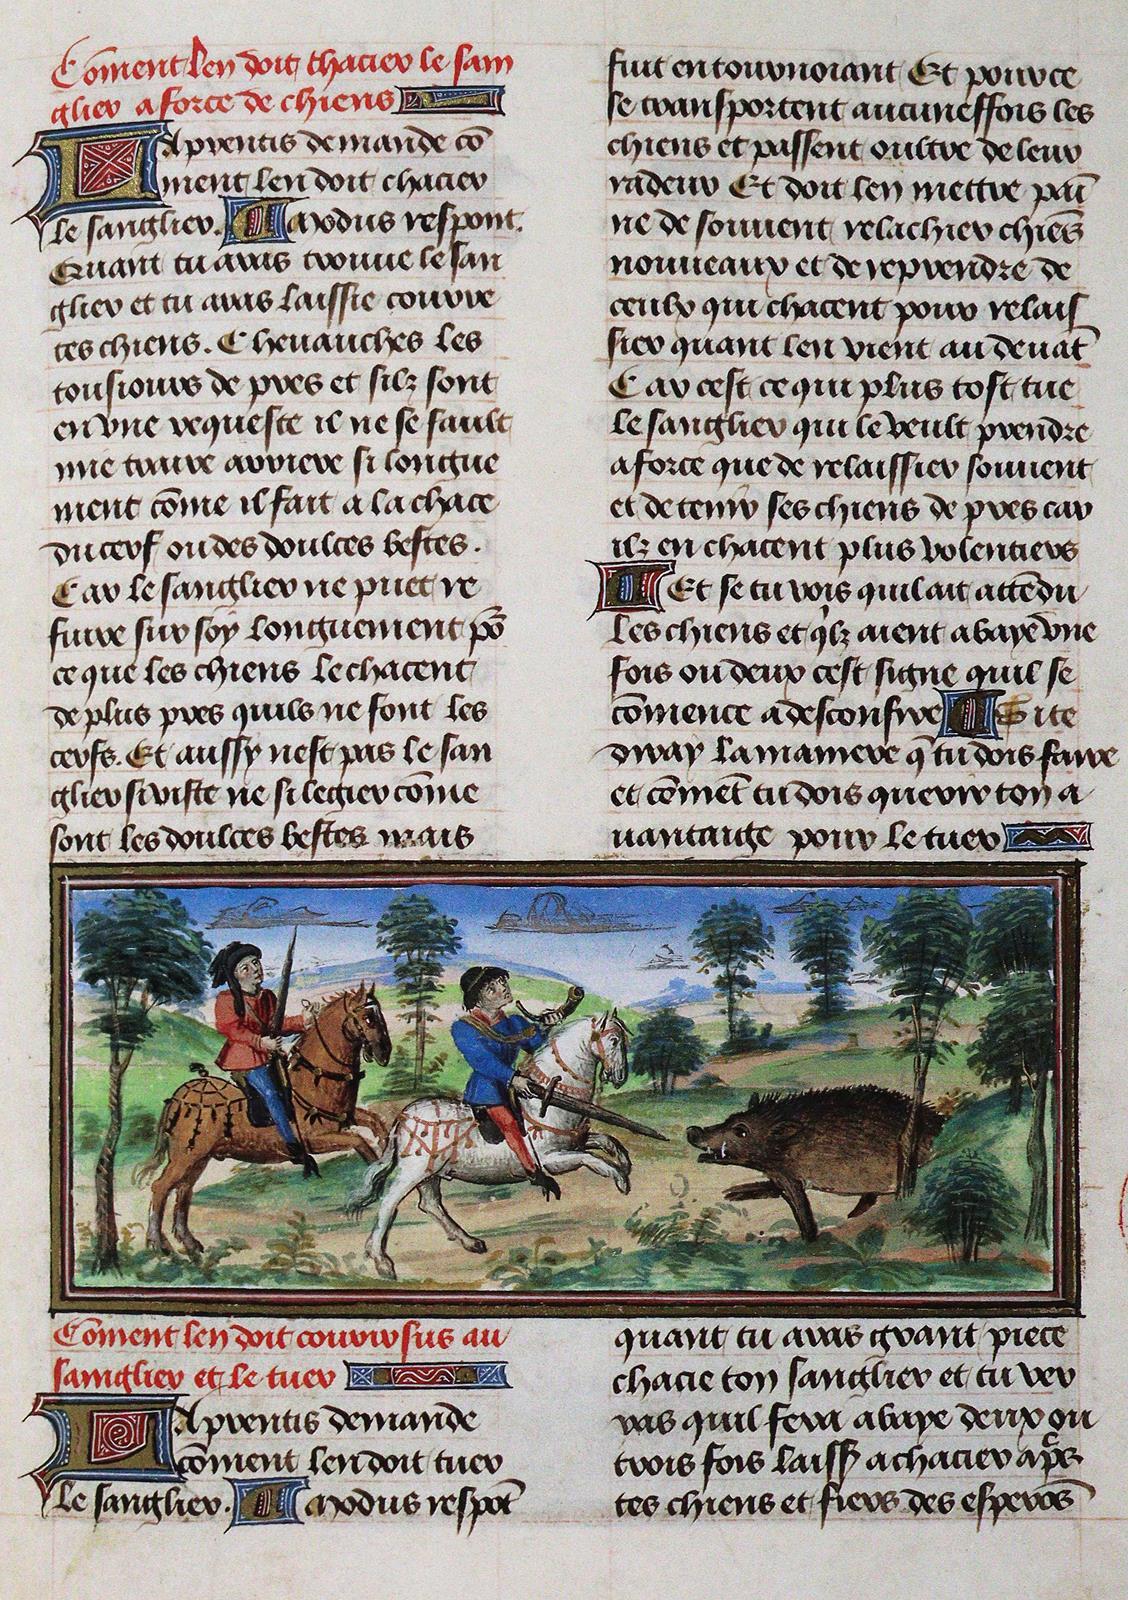 Coment len doit chacier le san
glier a force de chiens
Lapprentis demande cō
ment len doit chacier
le sanglier. Modus respont.
Quant tu aras trouue le san
glier et tu aras laissie courre
tes chiens. Cheuauches les
tousiours de pres et silz sont
en vne requeste il ne se fault
mie traire arriere si longue
ment cōme il fait a la chace
du cerf ou des doulces bestes.
Car le sanglier ne puet re
fuire sur soy longuement pō
ce que les chiens le chacent
de plus pres quils ne font les
cerfs. Et aussy nest pas le san
glier si viste ne si legier cōme
sont les doulces bestes mais
fuit en tournoiant Et pour ce
se transportent aucuneffois les
chiens et passent oultre de leur
radeur Et doit len mettre paī
ne de souuent relachier chiēs
nouueaux et de reprendre de
ceulx qui chacent pour relais
sier quant len vient au deuāt
Car cest ce qui plus tost tue
le sanglier qui le veult prendre
a force que de relaissier souuent
et de tenir ses chiens de pres car
ilz en chacent plus volentiers
Et se tu vois quil ait attēdu
les chiens et qlz aient abaye vne
fois ou deux cest signe quil se
cōmence a desconfire Si te
diray la maniere q̄ tu dois faire
et cōmēt tu dois querir ton a
uantaige pour le tuer
Cōment len doit courir sus au
sanglier et le tuer
Lapprentis demande
cōment len doit tuer
le sanglier. Modus respōt
quant tu aras grant piece
chacie ton sanglier et tu ver
ras quil fera abaye deux ou
trois fois laisse a chacier apēs
tes chiens et fiers des esperōs